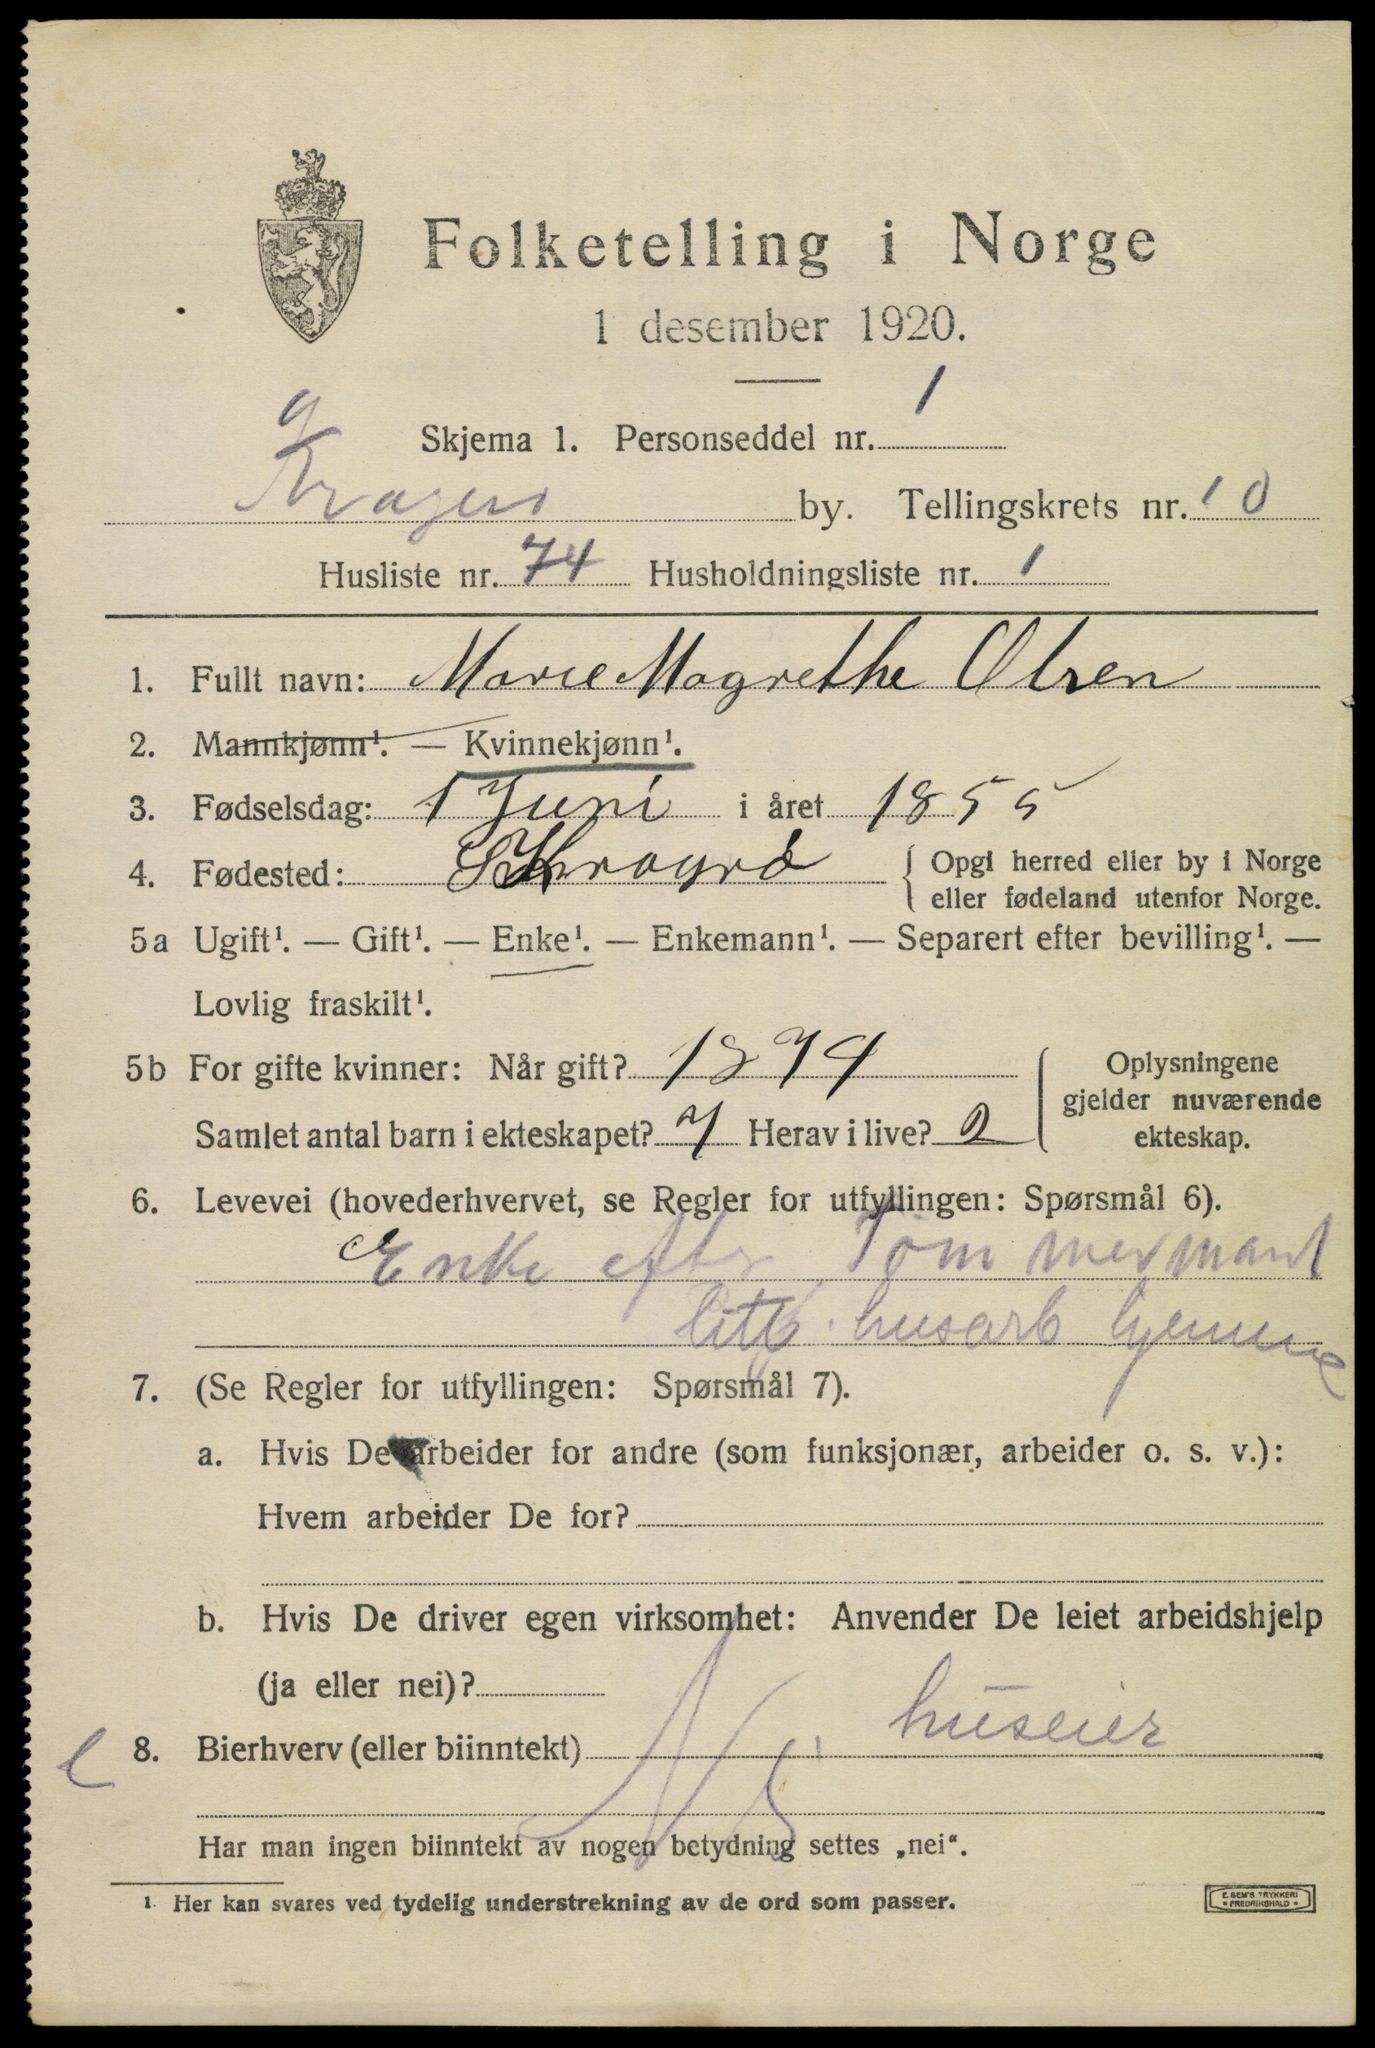 Folketelling i Norge
1 desember 1920.
Skjema 1. Personseddel nr. 1
Kragerø by. Tellingskrets nr. 10
Husliste nr. 74 Husholdningsliste nr. 1
1. Fullt navn: Marie Magrethe Olsen
2. Mannkjønn¹. — Kvinnekjønn¹.
3. Fødselsdag: 1 Juni i året 1855
4. Fødested: Skragrø { Opgi herred eller by i Norge
eller fødeland utenfor Norge.
5a Ugift¹. — Gift¹. — Enke¹. — Enkemann¹. — Separert efter bevilling¹. —
Lovlig fraskilt¹.
5b For gifte kvinner: Når gift? 1874
Samlet antal barn i ekteskapet? 7 Herav i live? 2
Oplysningene
gjelder nuværende
ekteskap.
6. Levevei (hovederhvervet, se Regler for utfyllingen: Spørsmål 6).
Enke efter Tømmermand
litt husarb hjemme
7. (Se Regler for utfyllingen: Spørsmål 7).
a. Hvis De arbeider for andre (som funksjonær, arbeider o. s. v.):
Hvem arbeider De for?
b. Hvis De driver egen virksomhet: Anvender De leiet arbeidshjelp
(ja eller nei)?
huseier
8. Bierhverv (eller biinntekt) Nei
Har man ingen biinntekt av nogen betydning settes „nei“.
1. Her kan svares ved tydelig understrekning av de ord som passer.
E. SEM'S TRYKKERI
FREDRIKSHALD